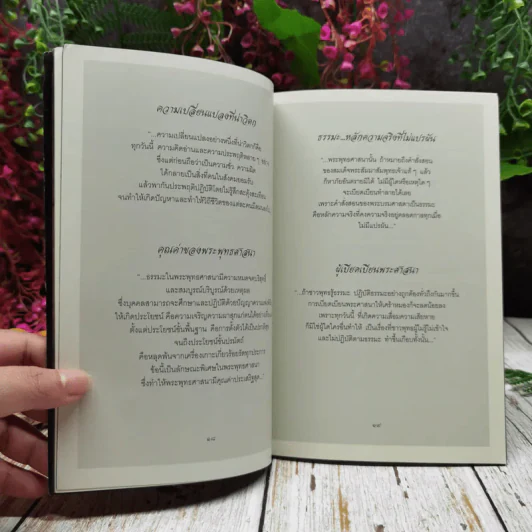 ความเปลี่ยนแปลงที่น่าวิตก
"...ความเปลี่ยนแปลงอย่างหนึ่งที่น่าวิตกก็คือ
ทุกวันนี้ ความคิดอ่านและความประพฤติหลาย ๆ อย่าง
ซึ่งแต่ก่อนถือว่าเป็นความชั่ว ความผิด
ได้กลายเป็นสิ่งที่คนในสังคมยอมรับ
แล้วพากันประพฤติปฏิบัติโดยไม่รู้สึกสะดุ้งสะเทือน
จนทำให้เกิดปัญหาและทำให้วิถีชีวิตของแต่ละคนมืดมนลง
คุณค่าของพระพุทธศาสนา
"...ธรรมะในพระพุทธศาสนามีความหมดจดบริสุทธิ์
และสมบูรณ์บริบูรณ์ด้วยเหตุผล
ซึ่งบุคคลสามารถจะศึกษาและปฏิบัติด้วยปัญญา
ให้เกิดประโยชน์ คือความเจริญความผาสุกแก่ตนได้อย่าง
ตั้งแต่ประโยชน์ขั้นพื้นฐาน คือการตั้งตัวได้เป็นปกติสุข
จนถึงประโยชน์ขั้นปรมัตถ์
คือหลุดพ้นจากเครื่องเกาะเกี่ยวร้อยรัดทุกประการ
ข้อนี้เป็นลักษณะพิเศษในพระพุทธศาสนา
ซึ่งทำให้พระพุทธศาสนามีคุณค่าประเสริฐสุด..."
๑๘
ธรรมะ...หลักความจริงที่ไม่แปรผัน
"...พระพุทธศาสนานั้น ถ้าหมายถึงคำสั่งสอน
ของสมเด็จพระสัมมาสัมพุทธเจ้าแท้ ๆ แล้ว
ก็หาภัยอันตรายมิได้ ไม่มีผู้ใดหรือเหตุใด ๆ
จะเบียดเบียนทำลายได้เลย
เพราะคำสั่งสอนของพระบรมศาสดาเป็นธรรมะ
คือหลักความจริงที่คงความจริงอยู่ตลอดกาลทุกเมื่อ
ไม่มีแปรผัน..."
ผู้เบียดเบียนพระศาสนา
"...ถ้าชาวพุทธรู้ธรรมะ ปฏิบัติธรรมะอย่างถูกต้องทั่วถึงกันมากขึ้น
การเบียดเบียนพระศาสนาให้เศร้าหมองก็จะลดน้อยลง
เพราะทุกวันนี้ ที่เกิดความเสื่อมความเสียหาย
ก็มิใช่ผู้ใดใครอื่นทำให้ เป็นเรื่องที่ชาวพุทธผู้ไม่รู้ไม่เข้าใจ
และไม่ปฏิบัติตามธรรมะ ทำขึ้นเกือบทั้งนั้น..."
๑๙